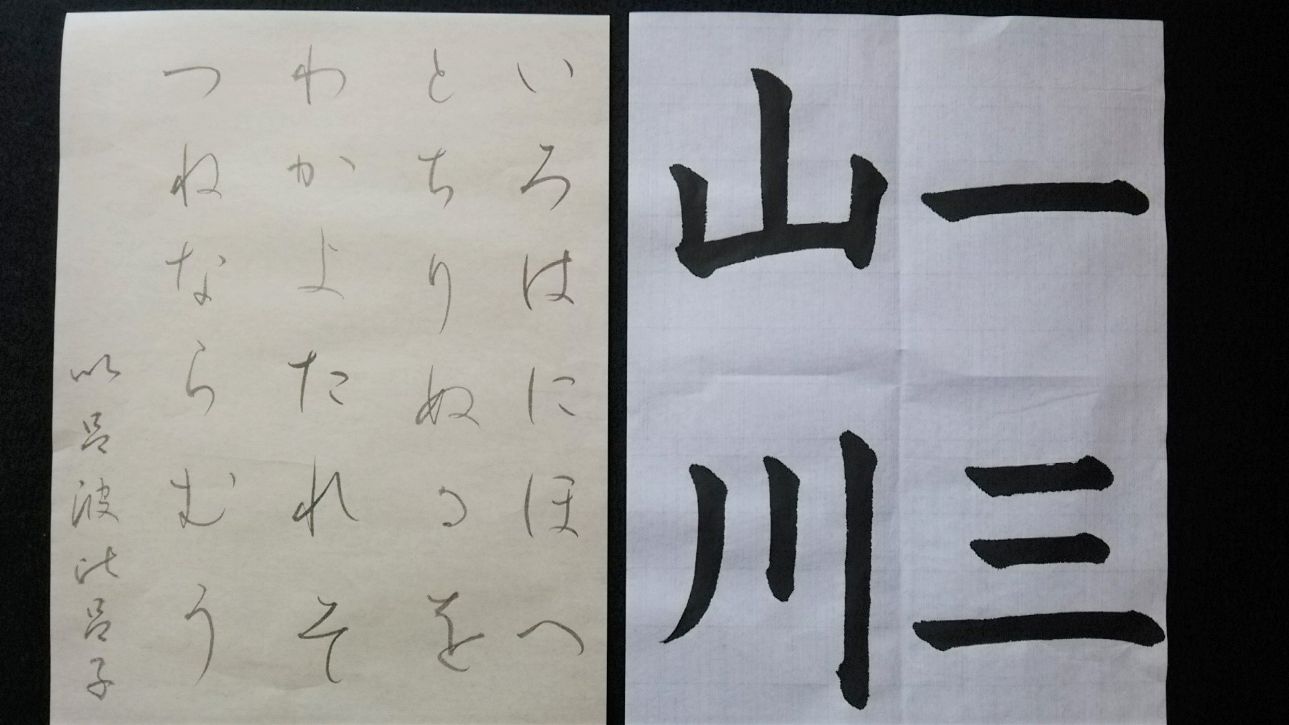 一三
山川
いろはにほへ
とちりぬるを
わかよたれそ
つねならむう
以呂波比呂子